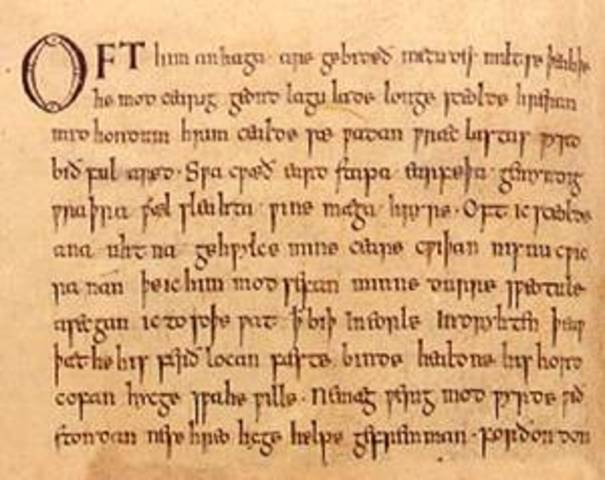 OFT him anhaga are gebideð metudes miltse þeahþe
he mod cearig geond lagu lade longe sceolde hreran
mid hondum hrim cealde sæ ƿadan ƿræc lastas ƿyrd
bið ful aræd · Sƿa cƿæð eard stapa earfeþa gemyndig
ƿraþra ƿæl sleahta ƿine mæga hryre · Oft ic sceolde
ana uhtna gehƿylce mine ceare cƿiþan nis nu cƿic
ra nan þe ic him mod sefan minne durre sƿeotule
asecgan ic to soþe ƿat ꝥ biþ in eorle indryhten þeaƿ
þæt he his ferð locan fæste binde healdne his hord
cofan hycge sƿa he ƿille · Ne mæg ƿerig mod ƿyrde ƿið
stondan ne se hreo hyge helpe gefremman · forðon dom